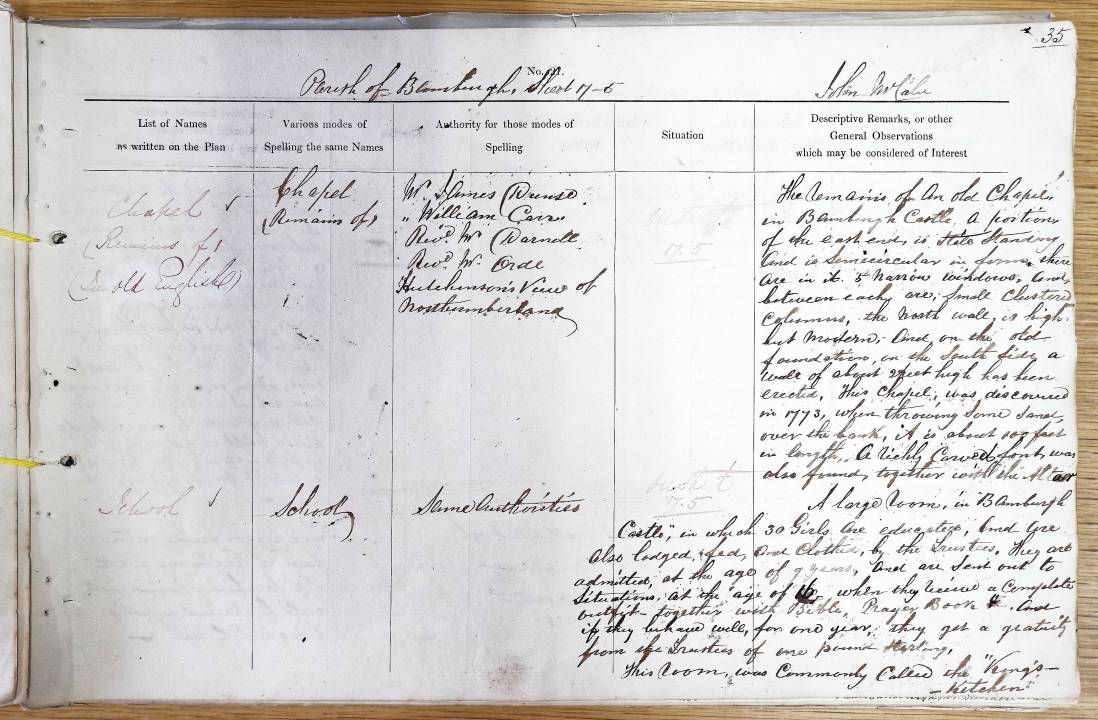 35
Parish of Bamburgh, Sheet 17-5
John McCabe
List of Names
as written on the Plan
Various modes of
Spelling the same Names
Authority for those modes of
Spelling
Situation
Descriptive Remarks, or other
General Observations
which may be considered of Interest
Chapel
(Remains of)
(In old English)
Chapel
(Remains of)
Mr. James
" William Carr
Revd. Mr. Darnell
Revd. Mr. Orde
Hutchinson's View of
Northumberland
17.5
The remains of an old Chapel,
in Bambrgh Castle. A portion
of the east end, is still standing
and is Semicircular in form, there
are in it 5 narrow windows, and
between each, are, small clustered
Columns, the North wall, is high
but Modern, and, on the old
foundation, on the South side, a
wall of about 2 feet high has been
erected, This Chapel, was discovered
in 1773, when throwing some sand,
over the bank, it is about 100 feet
in length, A richly Carved font, was
also found, together with the Altar
School
School
Same Authorities
See sheet
17.5
A large room, in "Bamburgh
Castle", in which 30 Girls are educated, and are
also lodged, fed, and Clothed, by the trustees. They are
admitted, at the age of 9 years, and are sent out to
Situations, at the age of 16, when they receive a Complete
outfit together with Bible, Prayer Book &c. And
if they behave well, for one year, they get a gratuity
from the Trustees of one pound Sterling.
This room, was Commonly Called the "King's-
-Kitchen"